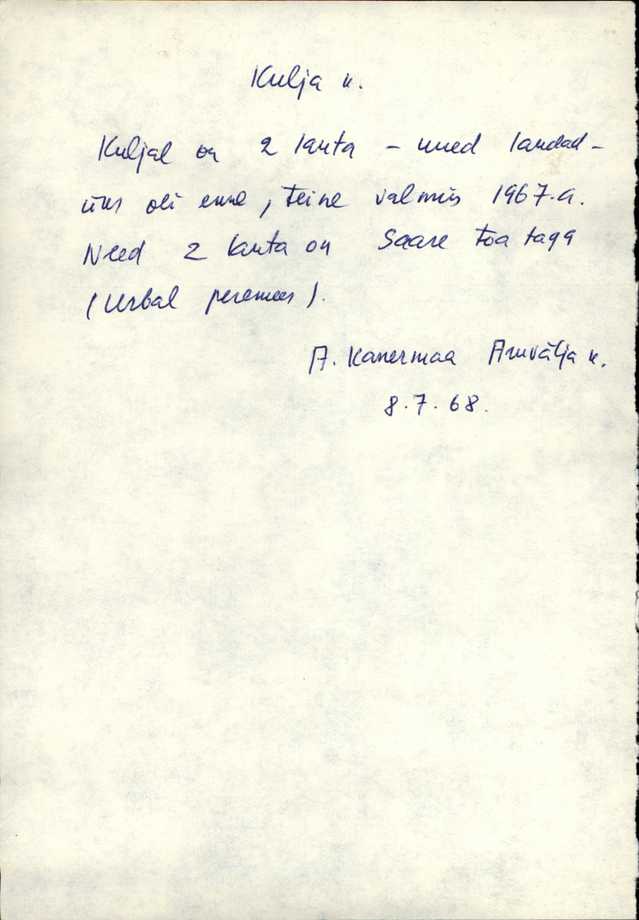 Kulja k.
Kuljal on 2 lauta – uued laudad –
üks oli enne, teine valmis 1967.a.
Need 2 lauta on Saare toa taga
(Urbal peremees).
A. Kanermaa Aruvälja k.
8.7.68.